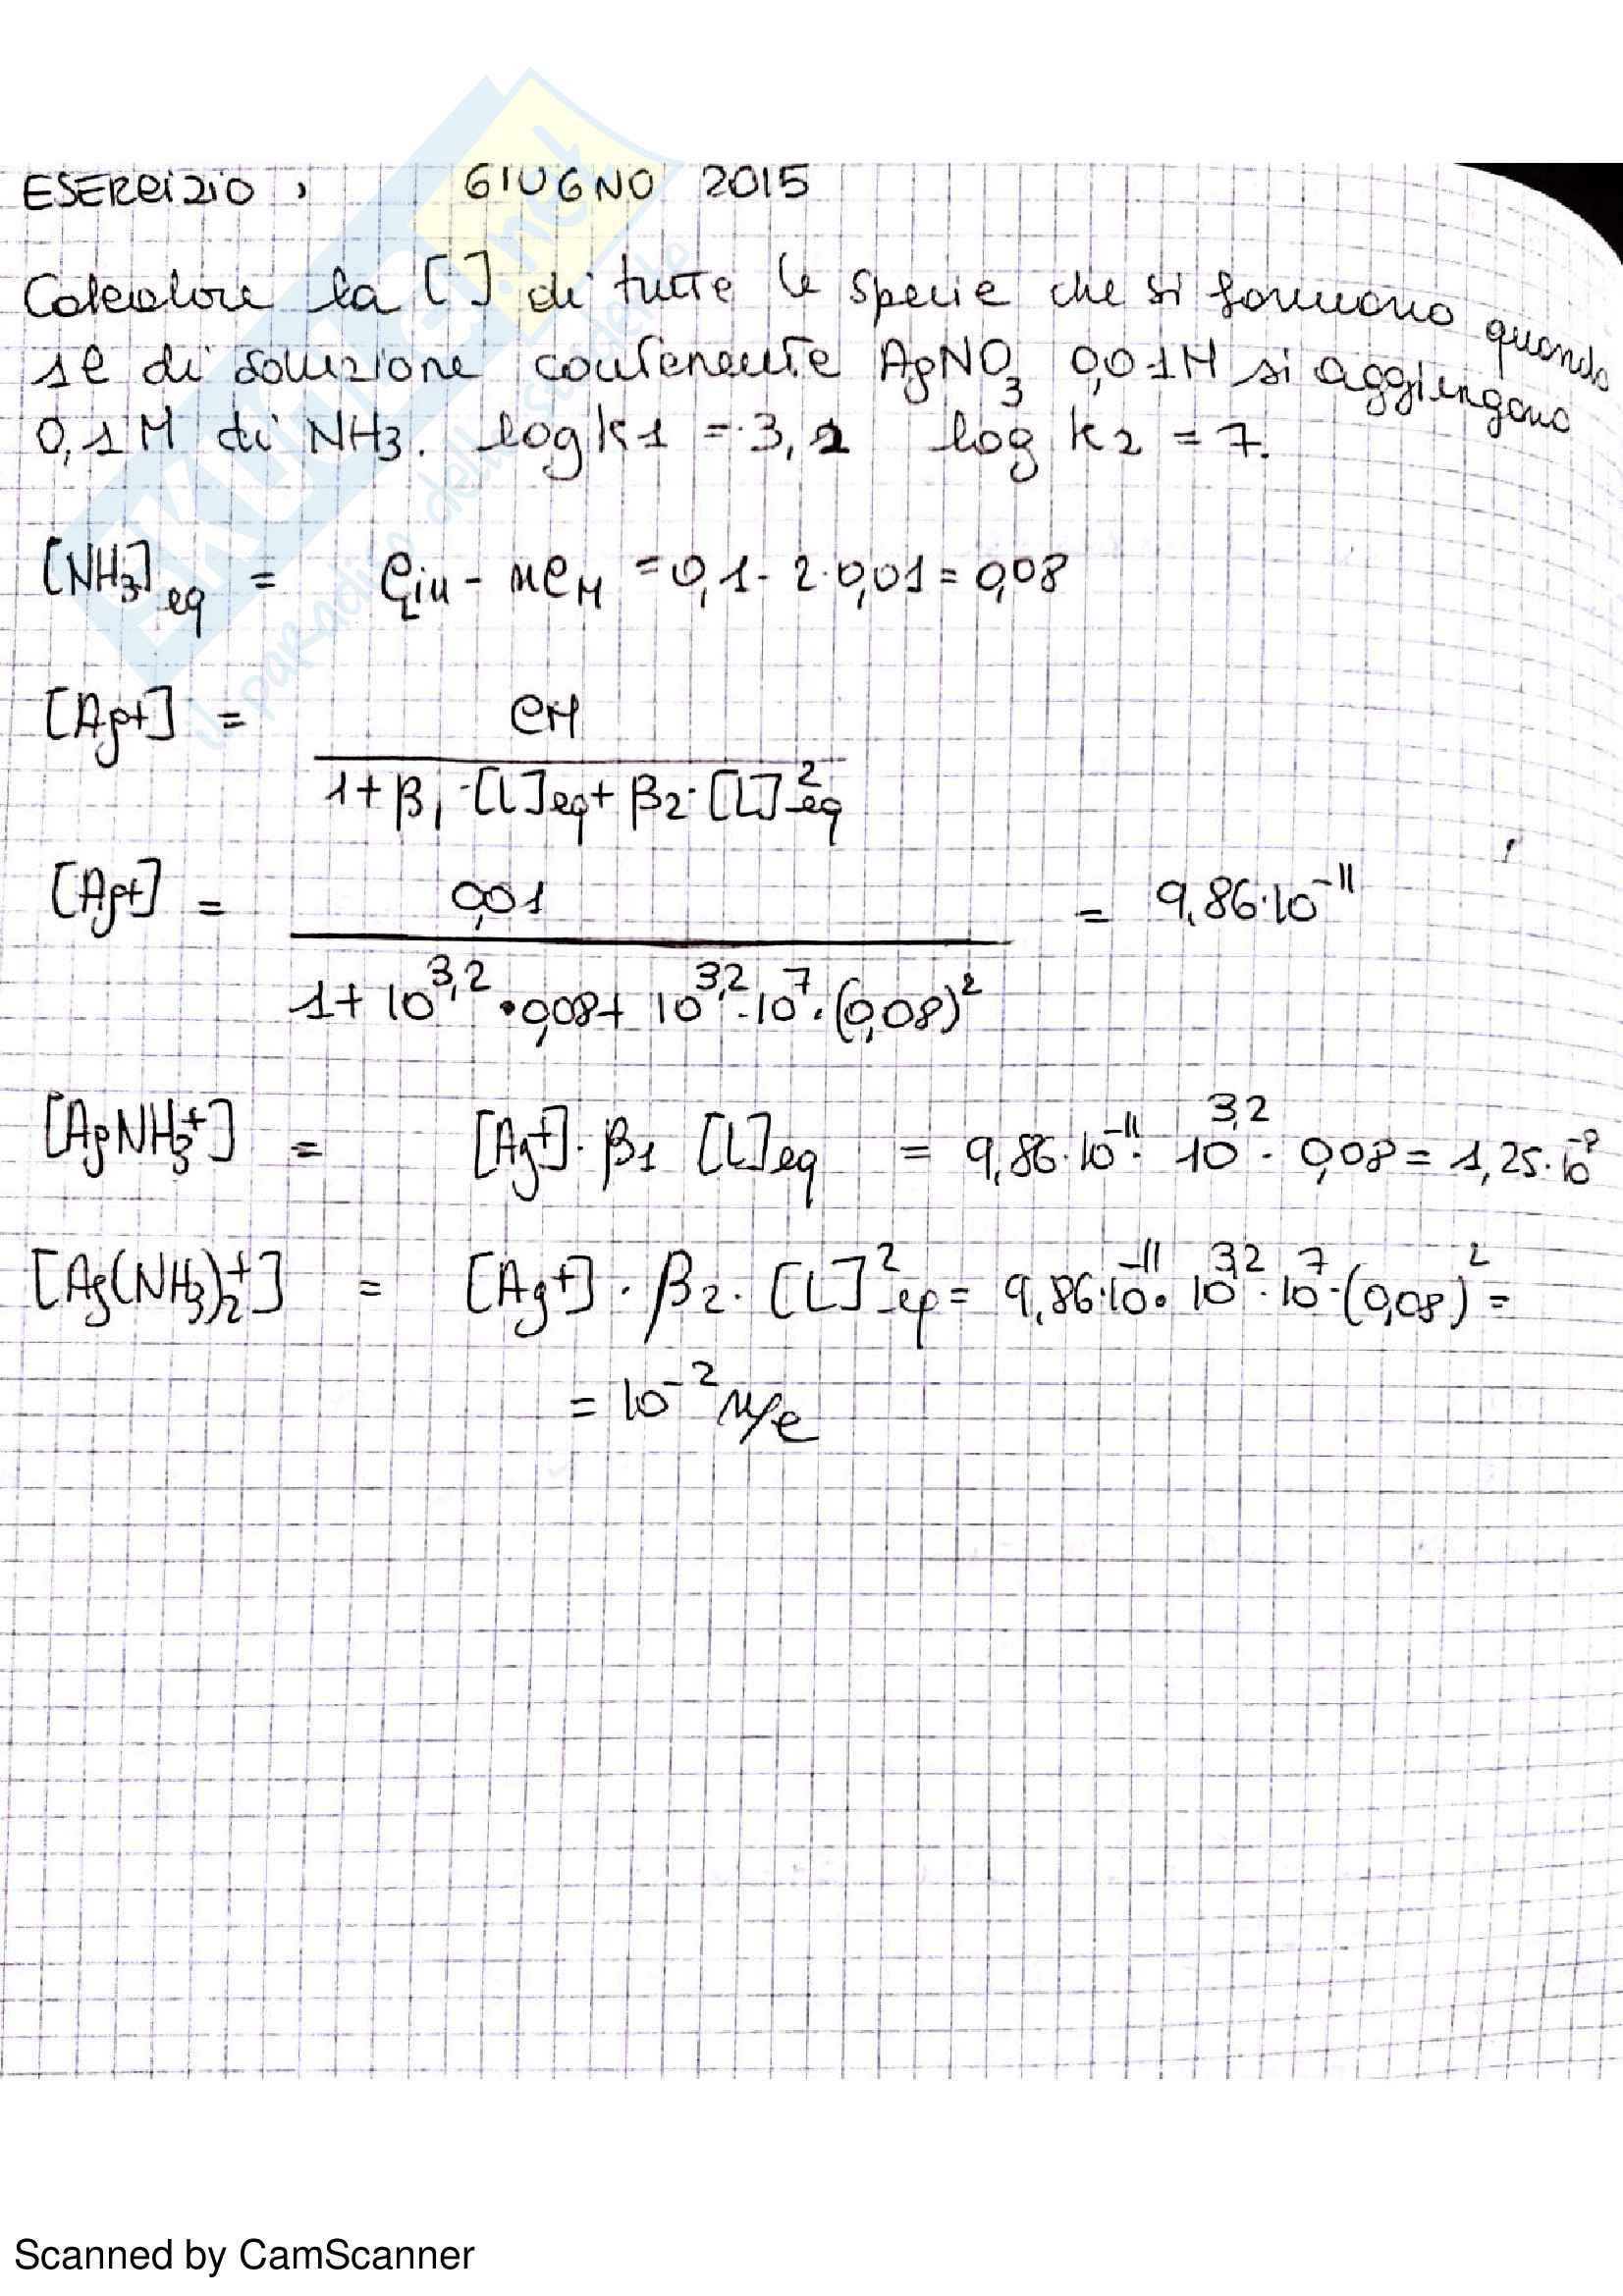 ESERCIZIO, GIUGNO 2015
Calcolare la [ ] di tutte le specie che si formano quando
1l di soluzione contenente AgNO3 0,01M si aggiungono
0,1M di NH3. log k1 = 3,2 log k2 = 7.
[NH3]eq = CLin - nCM = 0,1 - 2·0,01 = 0,08
[Ag+] = CM / 1+β1·[L]eq + β2·[L]²eq
[Ag+] = 0,01 / 1+10^3,2·0,08+10^3,2·10^7·(0,08)² = 9,86·10^-11
[AgNH3+] = [Ag+]·β1 [L]eq = 9,86·10^-11·10^3,2·0,08 = 1,25·10^-8
[Ag(NH3)2+] = [Ag+]·β2·[L]²eq = 9,86·10^-11·10^3,2·10^7·(0,08)² =
= 10^-2 M/l
SKUOLA.net
il paradiso dello studente
Scanned by CamScanner